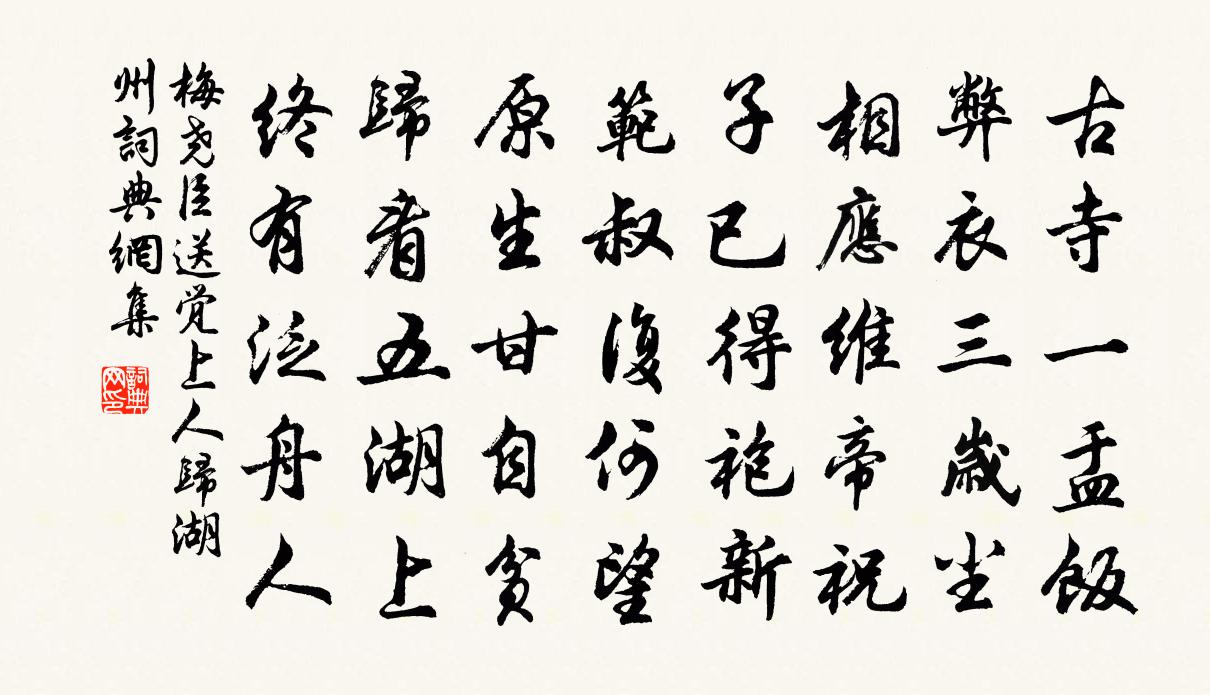 古寺一盂飯
弊衣三歲尘
相應維帝祝
子已得袍新
範叔復何望
原生甘自貧
歸看五湖上
終有泛舟人
梅尧臣送觉上人歸湖
州詞典網集
詞典
网印